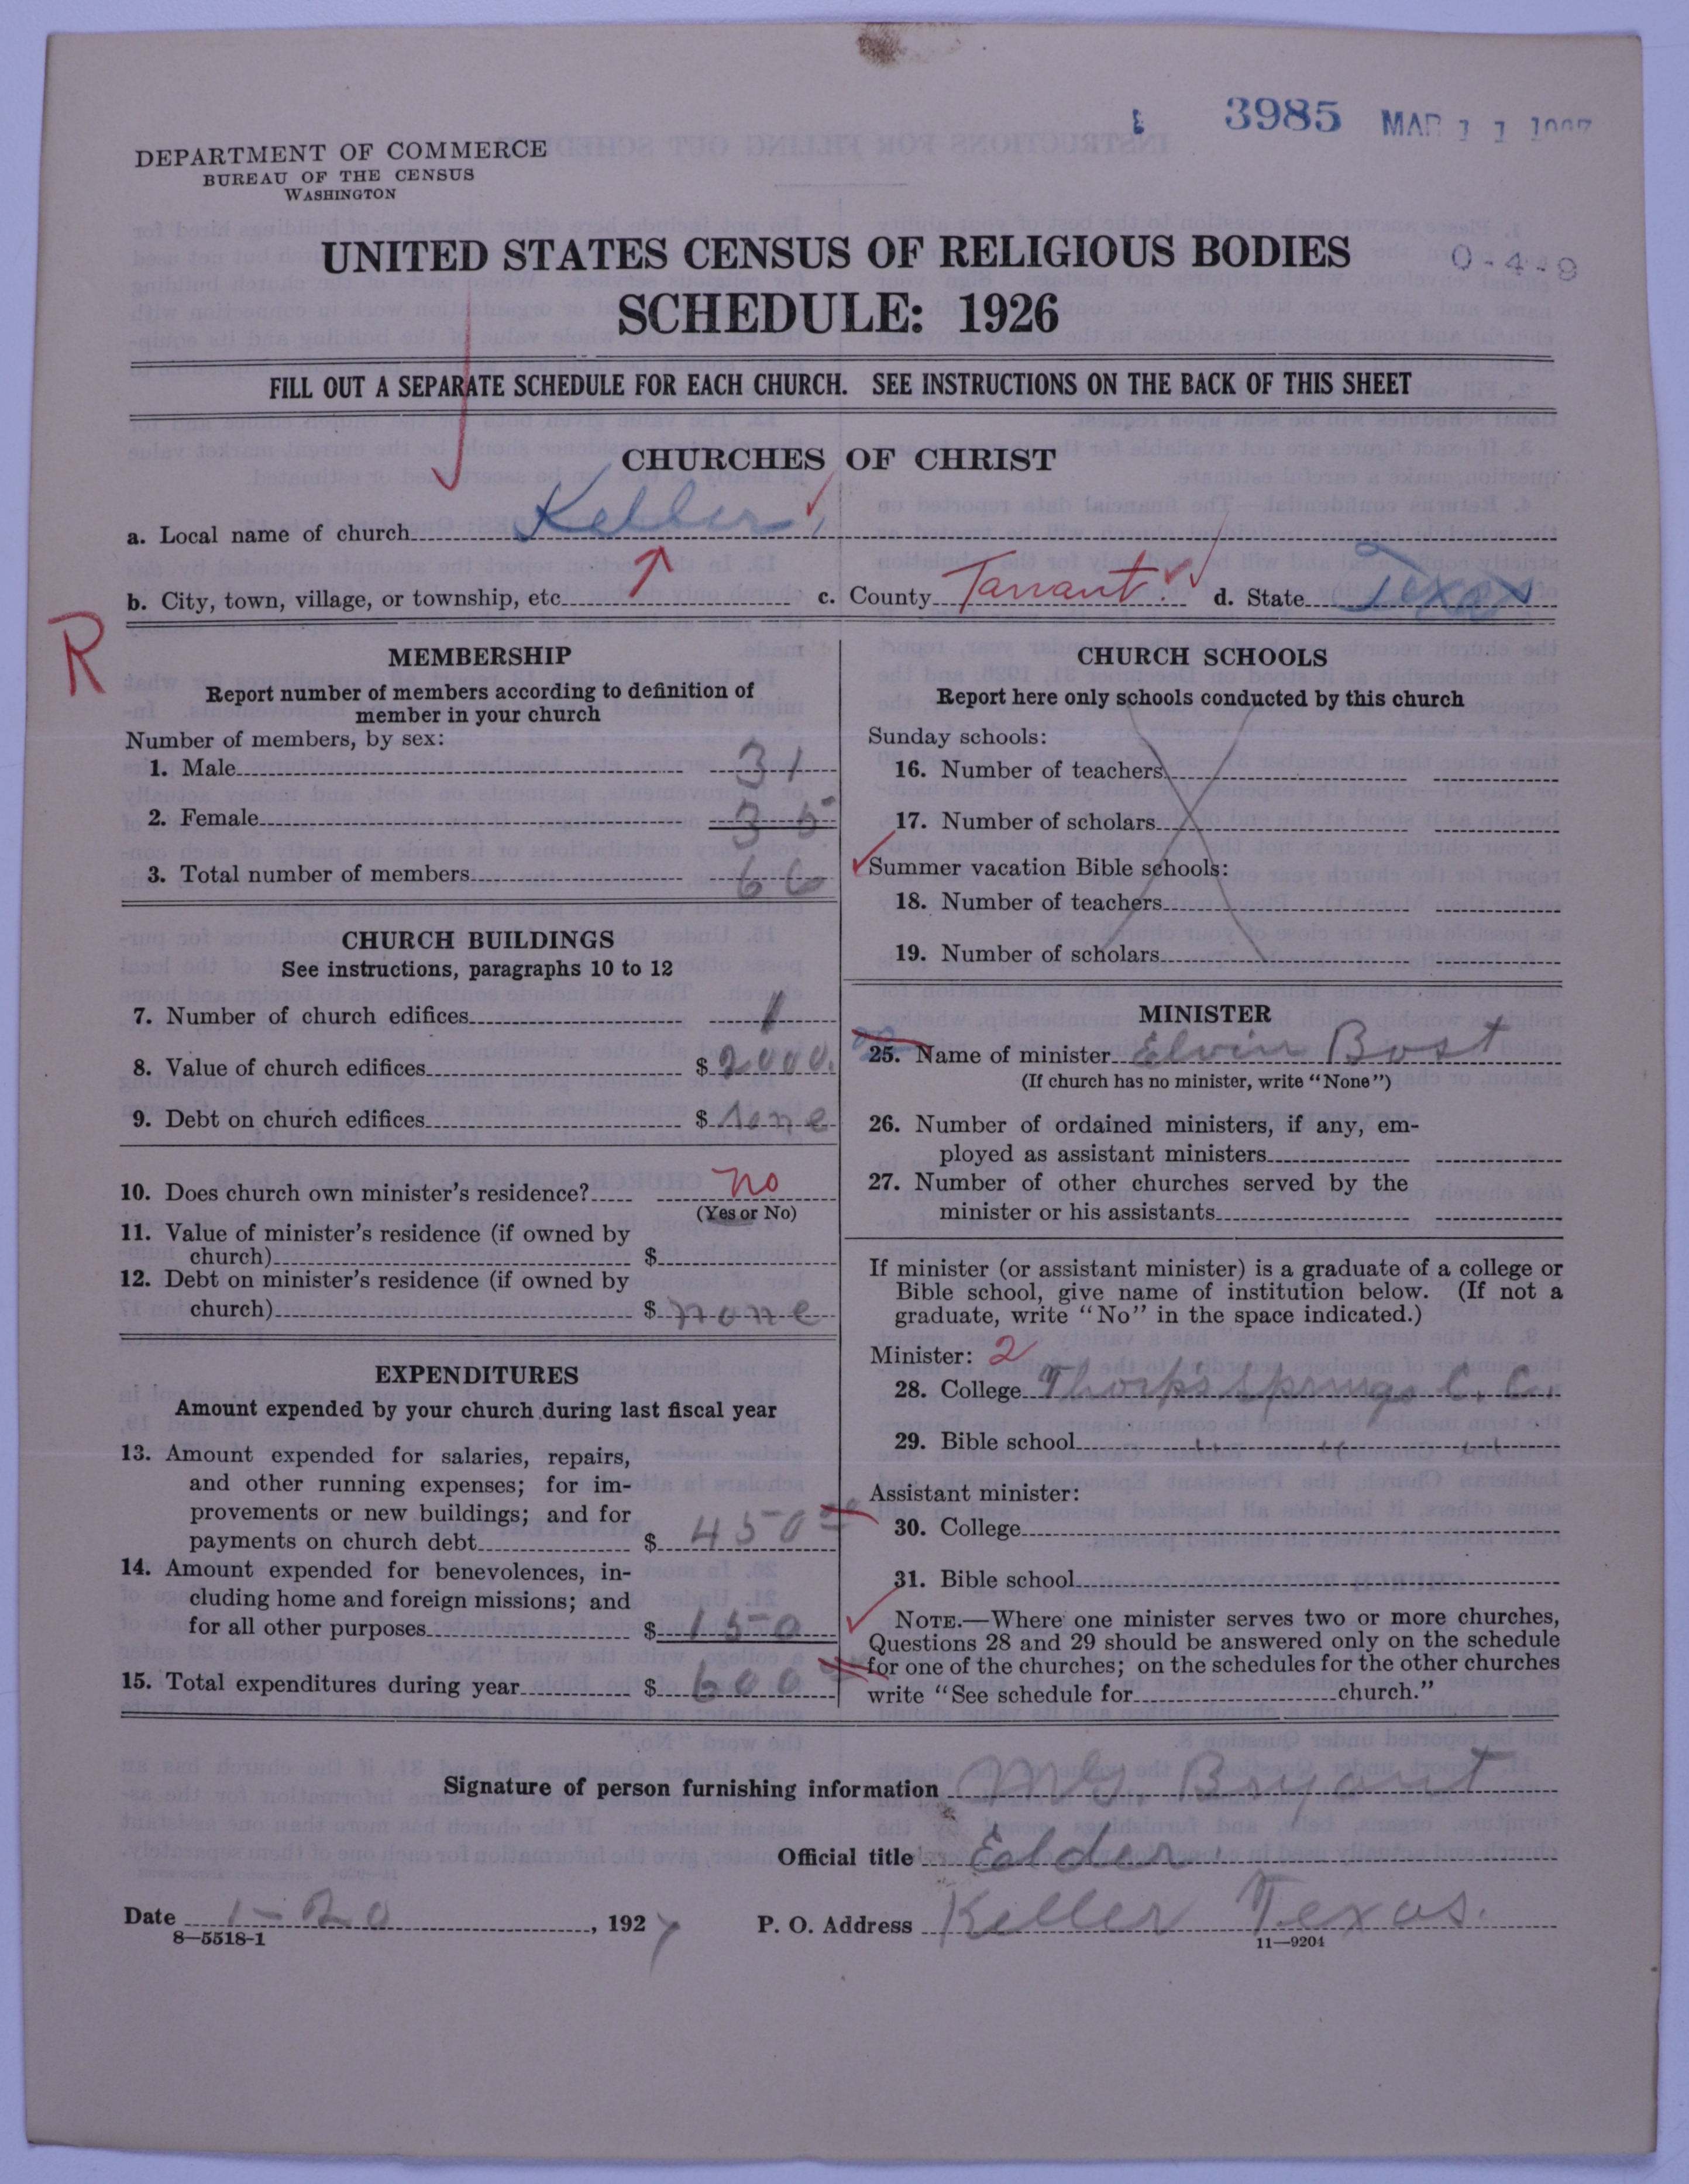 3985 MAR 11 1927
DEPARTMENT OF COMMERCE
BUREAU OF THE CENSUS
WASHINGTON
UNITED STATES CENSUS OF RELIGIOUS BODIES
0-4-9
SCHEDULE: 1926
FILL OUT A SEPARATE SCHEDULE FOR EACH CHURCH. SEE INSTRUCTIONS ON THE BACK OF THIS SHEET
CHURCHES OF CHRIST
a. Local name of church Keller
b. City, town, village, or township, etc. c. County Tarrant. d. State Texas
R
MEMBERSHIP
Report number of members according to definition of
member in your church
Number of members, by sex:
1. Male 31
2. Female 35
3. Total number of members 66
CHURCH BUILDINGS
See instructions, paragraphs 10 to 12
7. Number of church edifices 1
8. Value of church edifices $ 2000.
9. Debt on church edifices $ None
10. Does church own minister's residence? No
(Yes or No)
11. Value of minister's residence (if owned by
church) $
12. Debt on minister's residence (if owned by
church) $ none
EXPENDITURES
Amount expended by your church during last fiscal year
13. Amount expended for salaries, repairs,
and other running expenses; for im-
provements or new buildings; and for
payments on church debt $ 450 00
14. Amount expended for benevolences, in-
cluding home and foreign missions; and
for all other purposes $ 150
15. Total expenditures during year $ 600
CHURCH SCHOOLS
Report here only schools conducted by this church
Sunday schools:
16. Number of teachers
17. Number of scholars
Summer vacation Bible schools:
18. Number of teachers
19. Number of scholars
MINISTER
25. Name of minister Elvin Bost
(If church has no minister, write "None")
26. Number of ordained ministers, if any, em-
ployed as assistant ministers
27. Number of other churches served by the
minister or his assistants
If minister (or assistant minister) is a graduate of a college or
Bible school, give name of institution below. (If not a
graduate, write "No" in the space indicated.)
Minister: 2
28. College Thorp's Springs C. C.
29. Bible school
Assistant minister:
30. College
31. Bible school
NOTE.—Where one minister serves two or more churches,
Questions 28 and 29 should be answered only on the schedule
for one of the churches; on the schedules for the other churches
write "See schedule for church."
Signature of person furnishing information Bryant
Official title Elder
Date 1-20, 1927 P. O. Address Keller Texas.
8—5518-1 11—9204